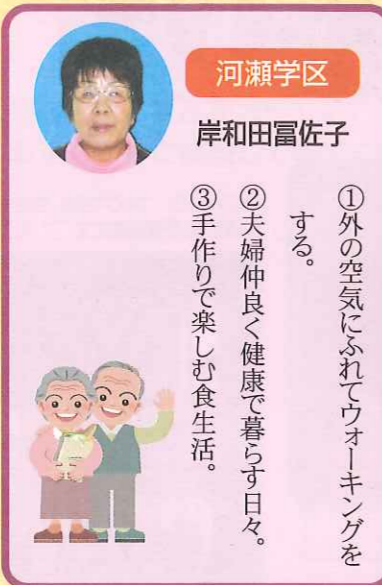 河瀬学区
岸和田冨佐子
①外の空気にふれてウォーキングを
する。
②夫婦仲良く健康で暮らす日々。
③手作りで楽しむ食生活。